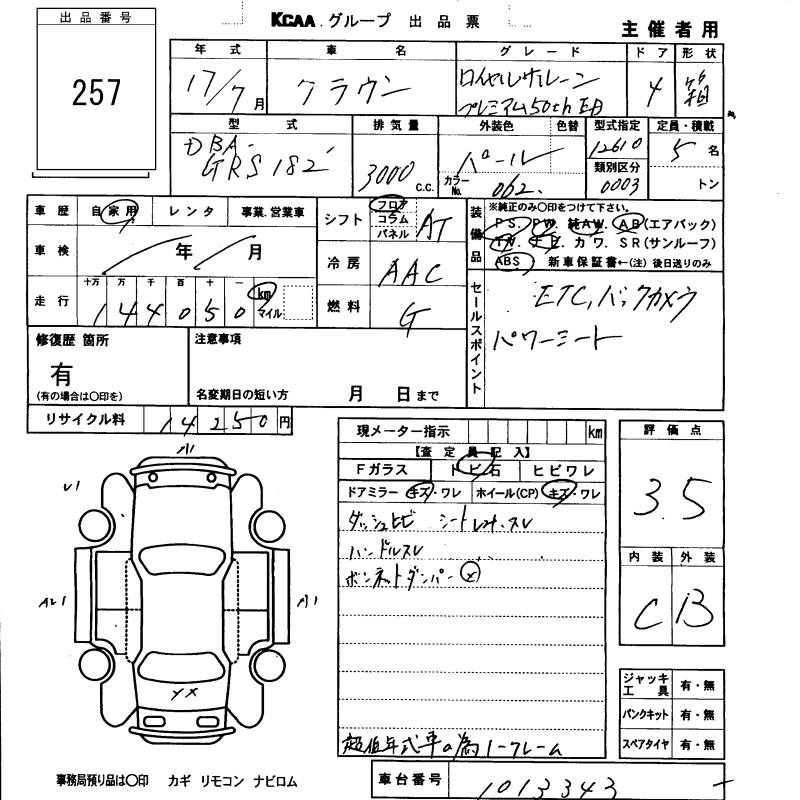 出品番号
KCAA グループ 出品票
主催者用
257
年式 車名 グレード ドア 形状
17/7月 クラウン ロイヤルサルーン 4 箱
プレミアム50th ED
型式 排気量 外装色 色替 型式指定 定員・積載
DBA-GRS182 3000 c.c. パール 12610 5名
カラーNo. 062 類別区分 0003 トン
車歴 自家用 レンタ 事業.営業車
シフト フロア コラム パネル AT
装備品 ※純正のみ○印をつけて下さい。
PS. PW. 純AW. AB(エアバック)
TV. ナビ カワ. SR(サンルーフ)
ABS 新車保証書←(注) 後日送りのみ
車検 年 月
冷房 AAC
走行 十万 万 千 百 十 一
144050 km マイル
燃料 G
セールスポイント ETC, バックカメラ
パワーシート
修復歴 箇所
有
(有の場合は○印を)
注意事項
名変期日の短い方 月 日まで
リサイクル料 14250円
現メーター指示 km
【査定員記入】
Fガラス トビ石 ヒビワレ
ドアミラー キズ・ワレ ホイール(CP) キズ・ワレ
ダッシュヒビ シートレナ・スレ
ハンドルスレ
ボンネットダンパー ×
超低年式車の為ノークレーム
評価点
3.5
内装 外装
C B
ジャッキ工具 有・無
パンクキット 有・無
スペアタイヤ 有・無
A1
U1
AU1
A1
YX
事務局預り品は○印 カギ リモコン ナビロム
車台番号 1013343